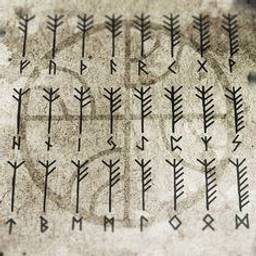 ᚠ ᚢ ᚦ ᚨ ᚱ ᚲ ᚷ ᚹ
ᚺ ᚾ ᛁ ᛃ ᛇ ᛈ ᛉ ᛊ
ᛏ ᛒ ᛖ ᛗ ᛚ ᛜ ᛟ ᛞ